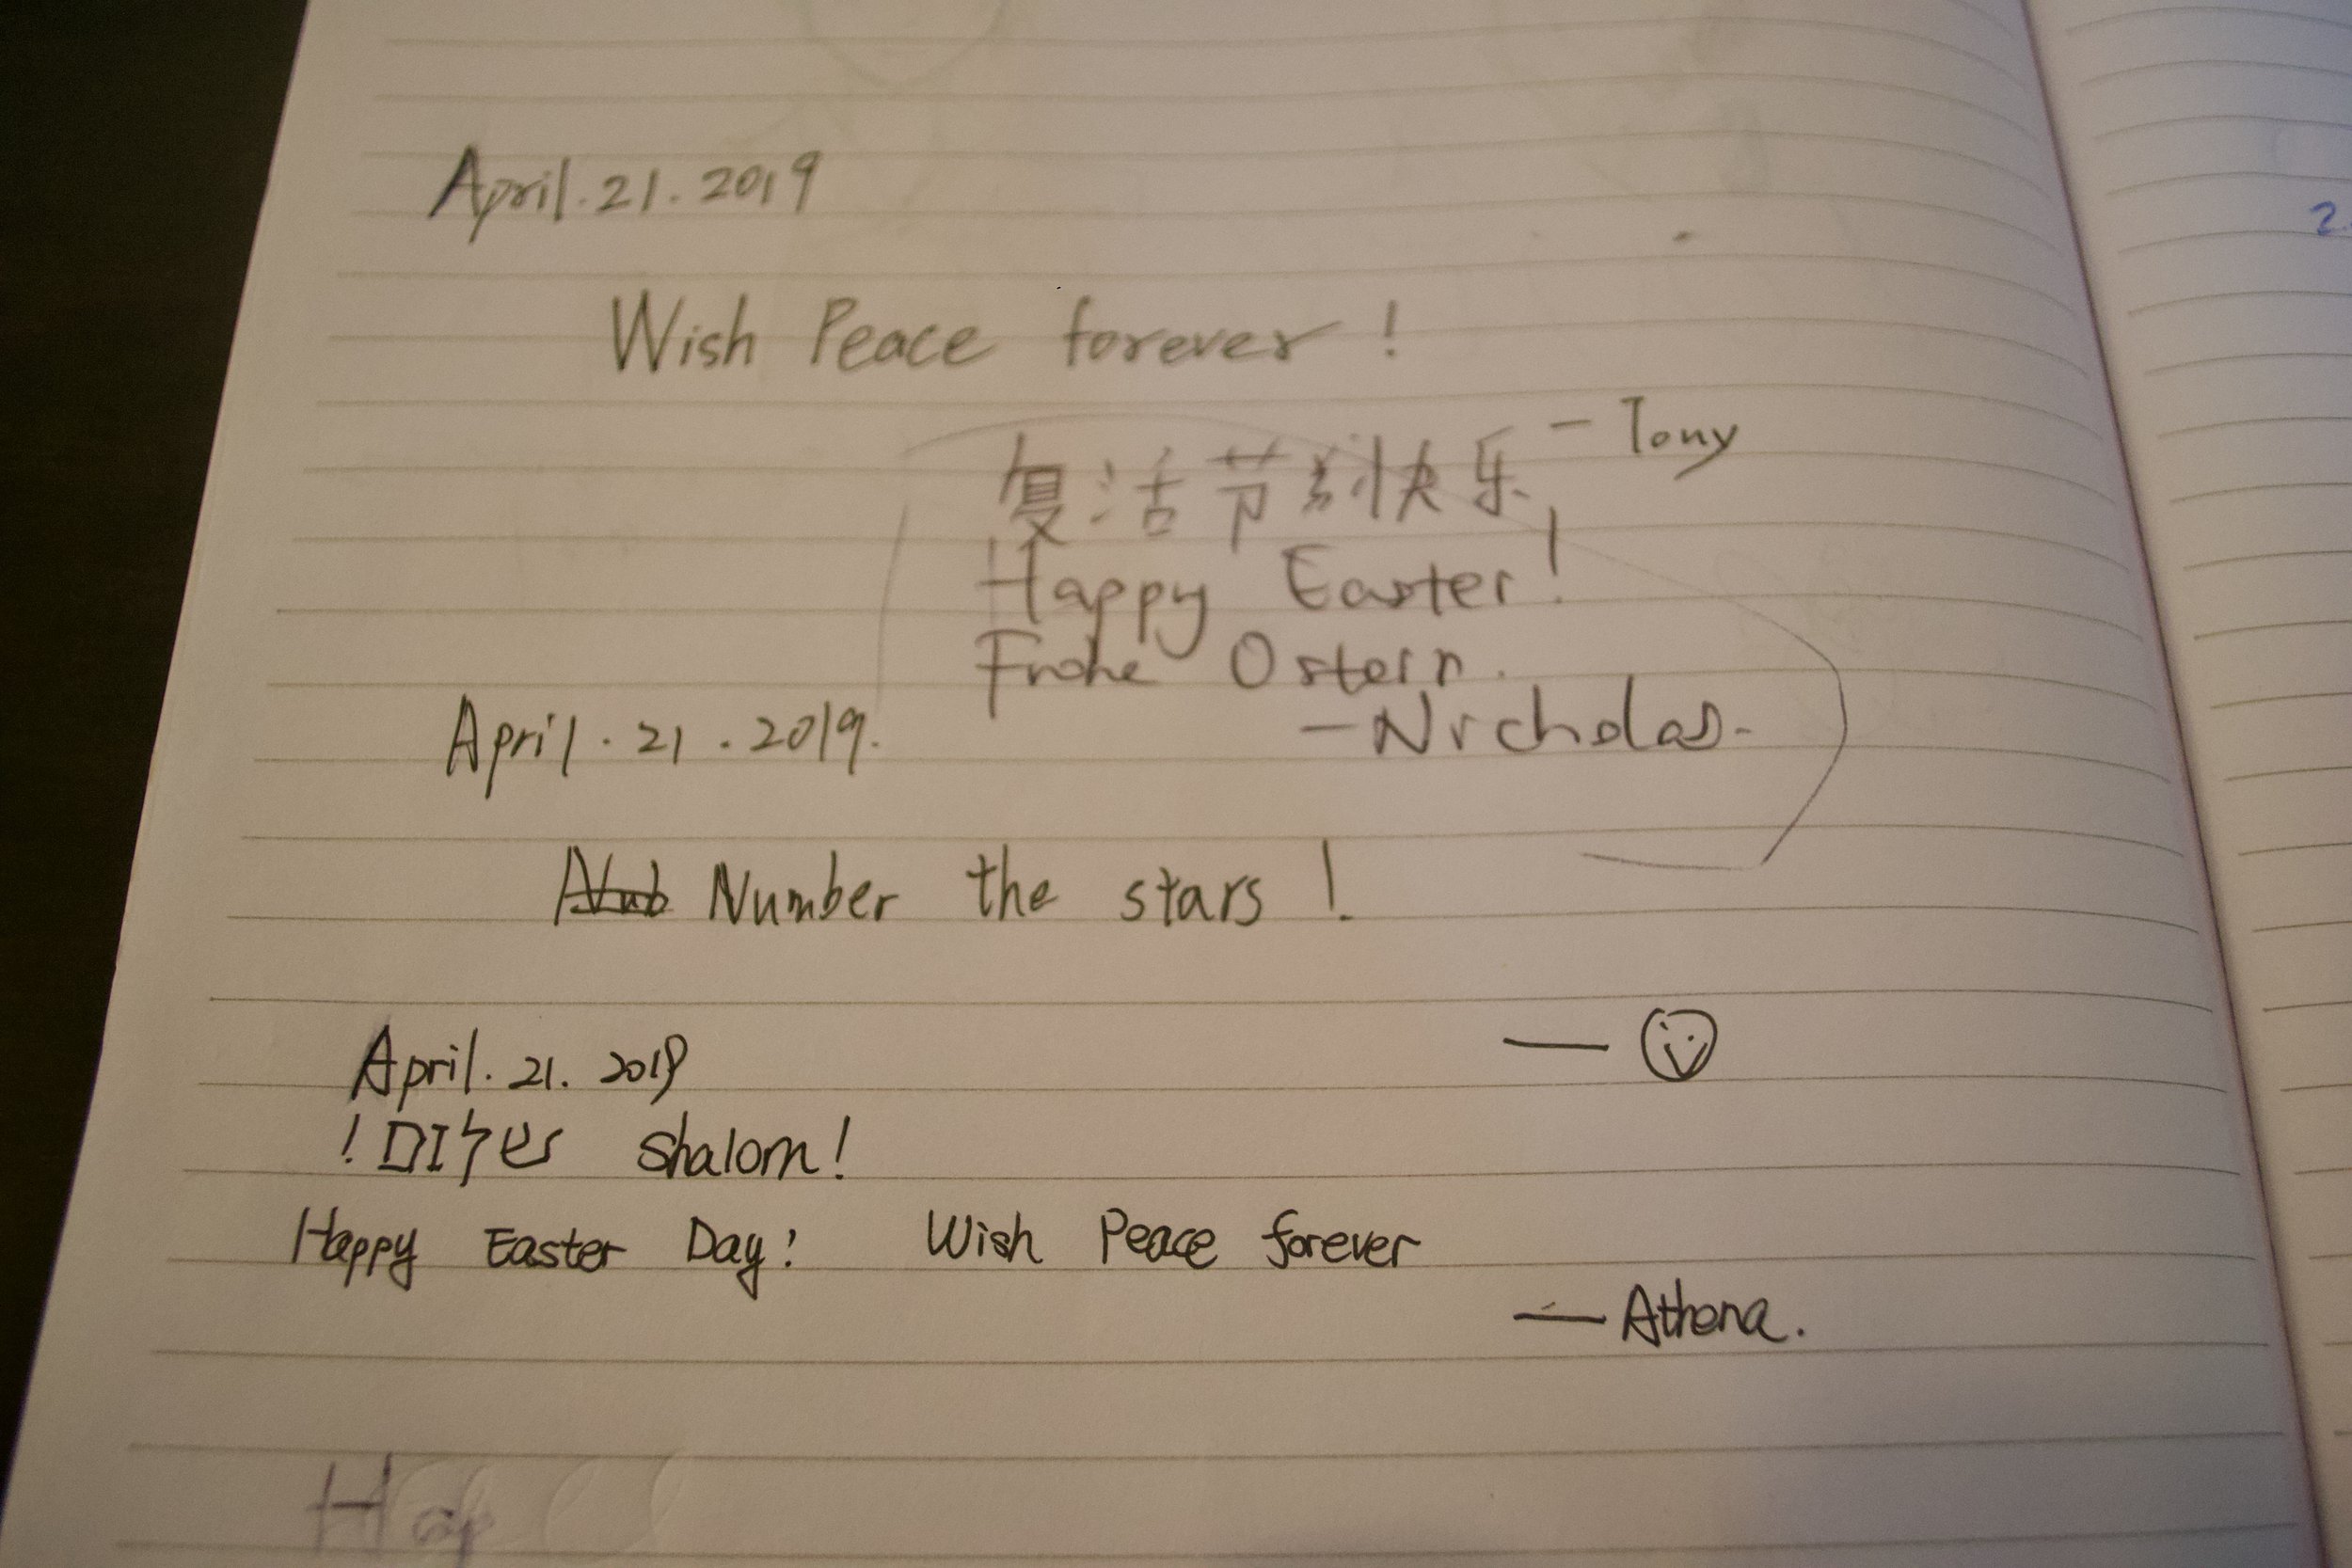 April.21.2019
Wish Peace forever!
- Tony
复活节到快乐
Happy Easter!
Frohe Ostern.
-Nicholas.
April.21.2019.
Number the stars!
April.21.2019
!שלום shalom!
Happy Easter Day! Wish Peace forever
—Athena.
Hap
2.